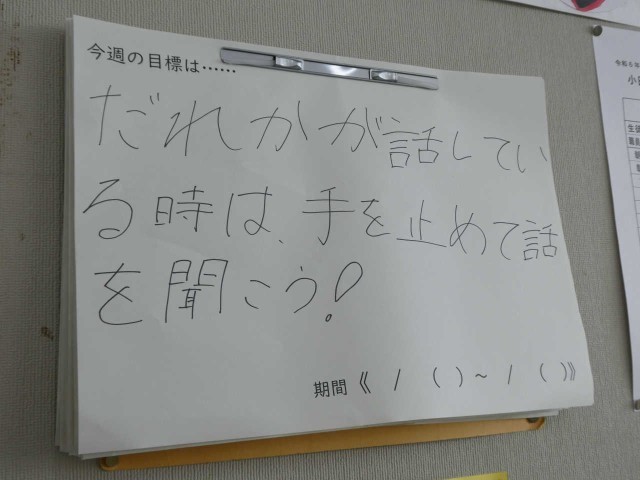 今週の目標は……
だれかが話してい
る時は、手を止めて話
を聞こう!
期間《 / ( )～ / ( )》
令和6年
小